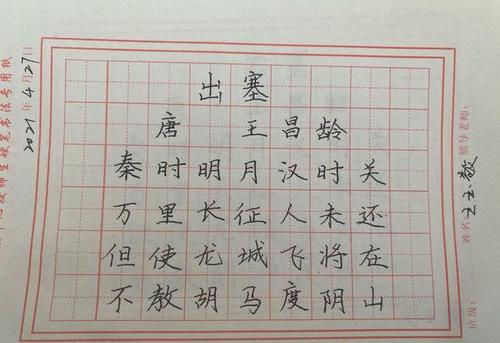 出塞
唐 王昌龄
秦时明月汉时关
万里长征人未还
但使龙城飞将在
不教胡马度阴山
2021年4月27日
师生硬笔书法专用纸
班级:
姓名:
辅导老师: